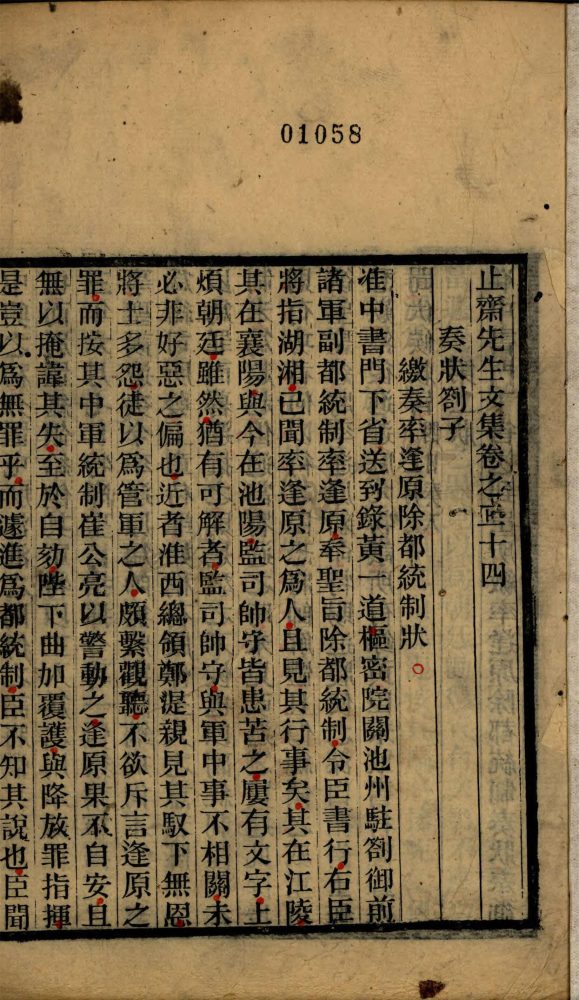 01058
止齋先生文集卷之十四
奏狀劄子
繳奏率逢原除都統制狀
准中書門下省送到錄黃一道樞密院關池州駐劄御前
諸軍副都統制率逢原奉聖旨除都統制令臣書行右臣
將指湖湘已聞率逢原之爲人且見其行事矣其在江陵
其在襄陽與今在池陽監司帥守皆患苦之屢有文字上
煩朝廷雖然猶有可解者監司帥守與軍中事不相關未
必非好惡之偏也近者淮西總領鄭湜親見其馭下無恩
將士多怨徒以爲管軍之人頗繫觀聽不欲斥言逢原之
罪而按其中軍統制崔公亮以警動之逢原果不自安且
無以掩諱其失至於自劾陛下曲加覆護與降放罪指揮
是豈以爲無罪乎而遽進爲都統制臣不知其說也臣聞